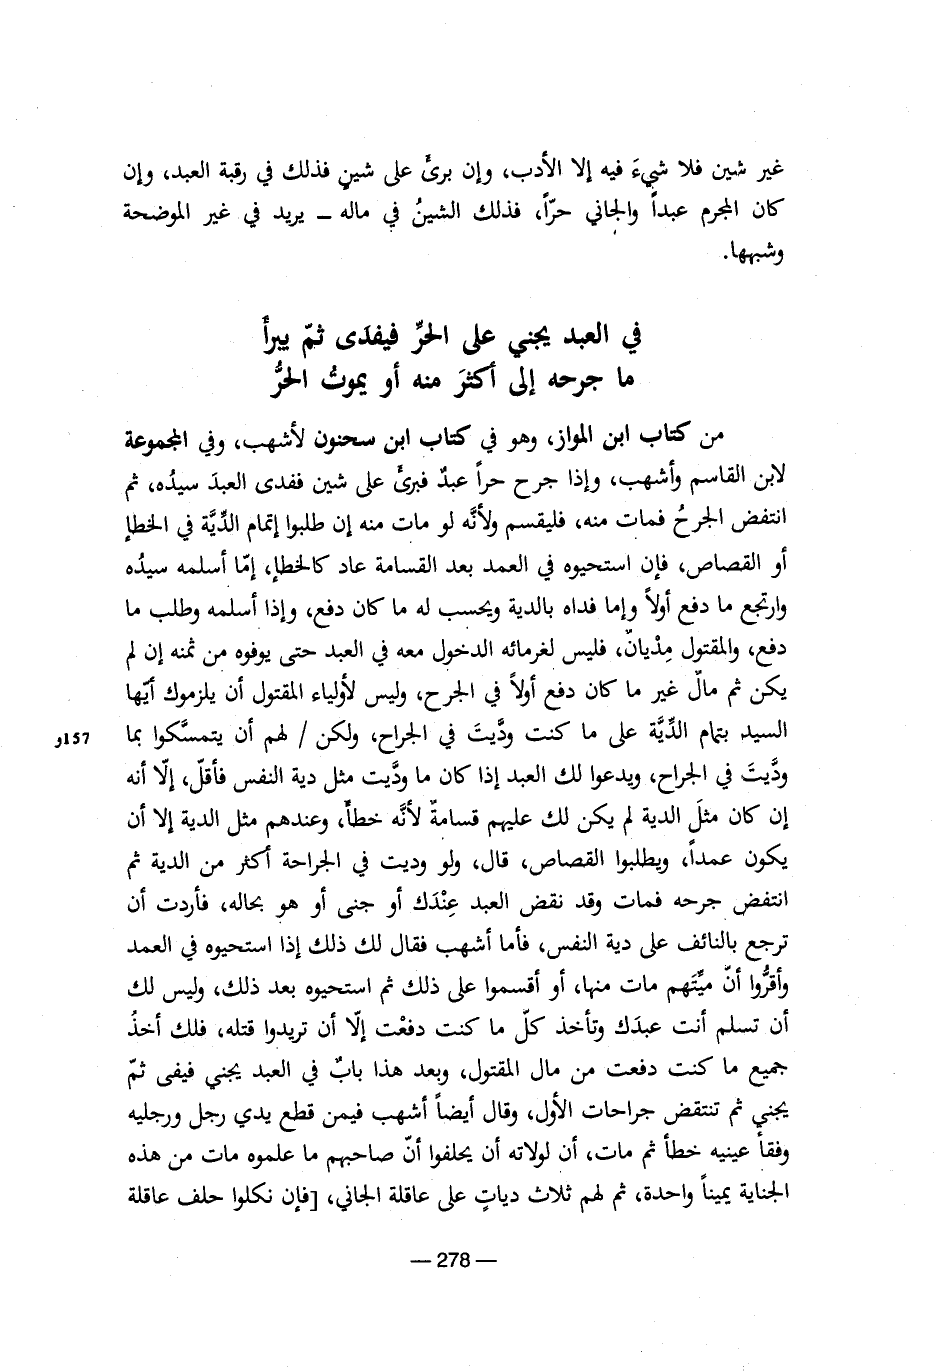 غير شين فلا شيءَ فيه إلا الأدب، وإن برئَ على شينٍ فذلك في رقبة العبد، وإن
كان المجرم عبداً والجاني حرّاً، فذلك الشينُ في ماله – يريد في غير الموضحة
وشبهها.
في العبد يجني على الحرِّ فيفدَى ثمّ يبرأ
ما جرحه إلى أكثرَ منه أو يموتُ الحرُّ
من كتاب ابن المواز، وهو في كتاب ابن سحنون لأشهب، وفي المجموعة
لابن القاسم وأشهب، وإذا جرح حراً عبدٌ فبرئَ على شين ففدى العبدَ سيدُه، ثم
انتفض الجرحُ فمات منه، فليقسم ولأنَّه لو مات منه إن طلبوا إتمام الدِّيَّة في الخطإ
أو القصاص، فإن استحيوه في العمد بعد القسامة عاد كالخطإ، إمّا أسلمه سيدُه
وارتجع ما دفع أولاً وإما فداه بالدية ويحسب له ما كان دفع، وإذا أسلمه وطلب ما
دفع، والمقتول مِدْيانٌ، فليس لغرمائه الدخول معه في العبد حتى يوفوه من ثمنه إن لم
يكن ثم مالٌ غير ما كان دفع أولاً في الجرح، وليس لأولياء المقتول أن يلزموك أيّها
السيد بتمام الدِّيَّة على ما كنت ودَّيتَ في الجراح، ولكن / لهم أن يتمسَّكوا بما
157و
ودَّيتَ في الجراح، ويدعوا لك العبد إذا كان ما ودَّيت مثل دية النفس فأقلّ، إلّا أنه
إن كان مثلَ الدية لم يكن لك عليهم قسامةٌ لأنَّه خطأٌ، وعندهم مثل الدية إلا أن
يكون عمداً، ويطلبوا القصاص، قال، ولو وديت في الجراحة أكثر من الدية ثم
انتفض جرحه فمات وقد نقض العبد عِنْدَك أو جنى أو هو بحاله، فأردت أن
ترجع بالنائف على دية النفس، فأما أشهب فقال لك ذلك إذا استحيوه في العمد
وأقرُّوا أنّ ميِّتَهم مات منها، أو أقسموا على ذلك ثم استحيوه بعد ذلك، وليس لك
أن تسلم أنت عبدَك وتأخذ كلّ ما كنت دفعْت إلّا أن تريدوا قتله، فلك أخذُ
جميع ما كنت دفعت من مال المقتول، وبعد هذا بابٌ في العبد يجني فيفى ثمّ
يجني ثم تنتقض جراحات الأول، وقال أيضاً أشهب فيمن قطع يدي رجل ورجليه
وفقأ عينيه خطأ ثم مات، أن لولاته أن يحلفوا أنّ صاحبهم ما علموه مات من هذه
الجناية يميناً واحدة، ثم لهم ثلاث دياتٍ على عاقلة الجاني، [فإن نكلوا حلف عاقلة
— 278 —